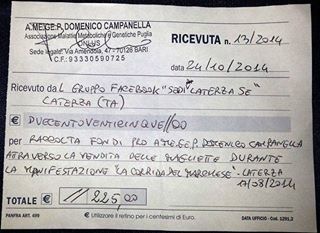 A.ME.GE.P. DOMENICO CAMPANELLA
Associazione Malattie Metaboliche e Genetiche Puglia
ONLUS
Sede legale: Via Amendola, 47 - 70126 BARI
C.F.: 93330590725
RICEVUTA n. 13/2014
data 24/10/2014
Ricevuto dal GRUPPO FACEBOOK "SEDI LATERZA SE"
LATERZA (TA)
€ DUECENTOVENTICINQUE//00
per RACCOLTA FONDI PRO A.ME.GE.P. DOMENICO CAMPANELLA
ATRAVERSO LA VENDITA DELLE MAGLIETTE DURANTE
LA MANIFESTAZIONE "LA CORRIDA DEL MARCHESE" - LATERZA
17/08/2014
TOTALE € // 225,00
PANFRA ART. 499
Utilizzare il retino per i centesimi di Euro.
DATA UFFICIO - Cod.